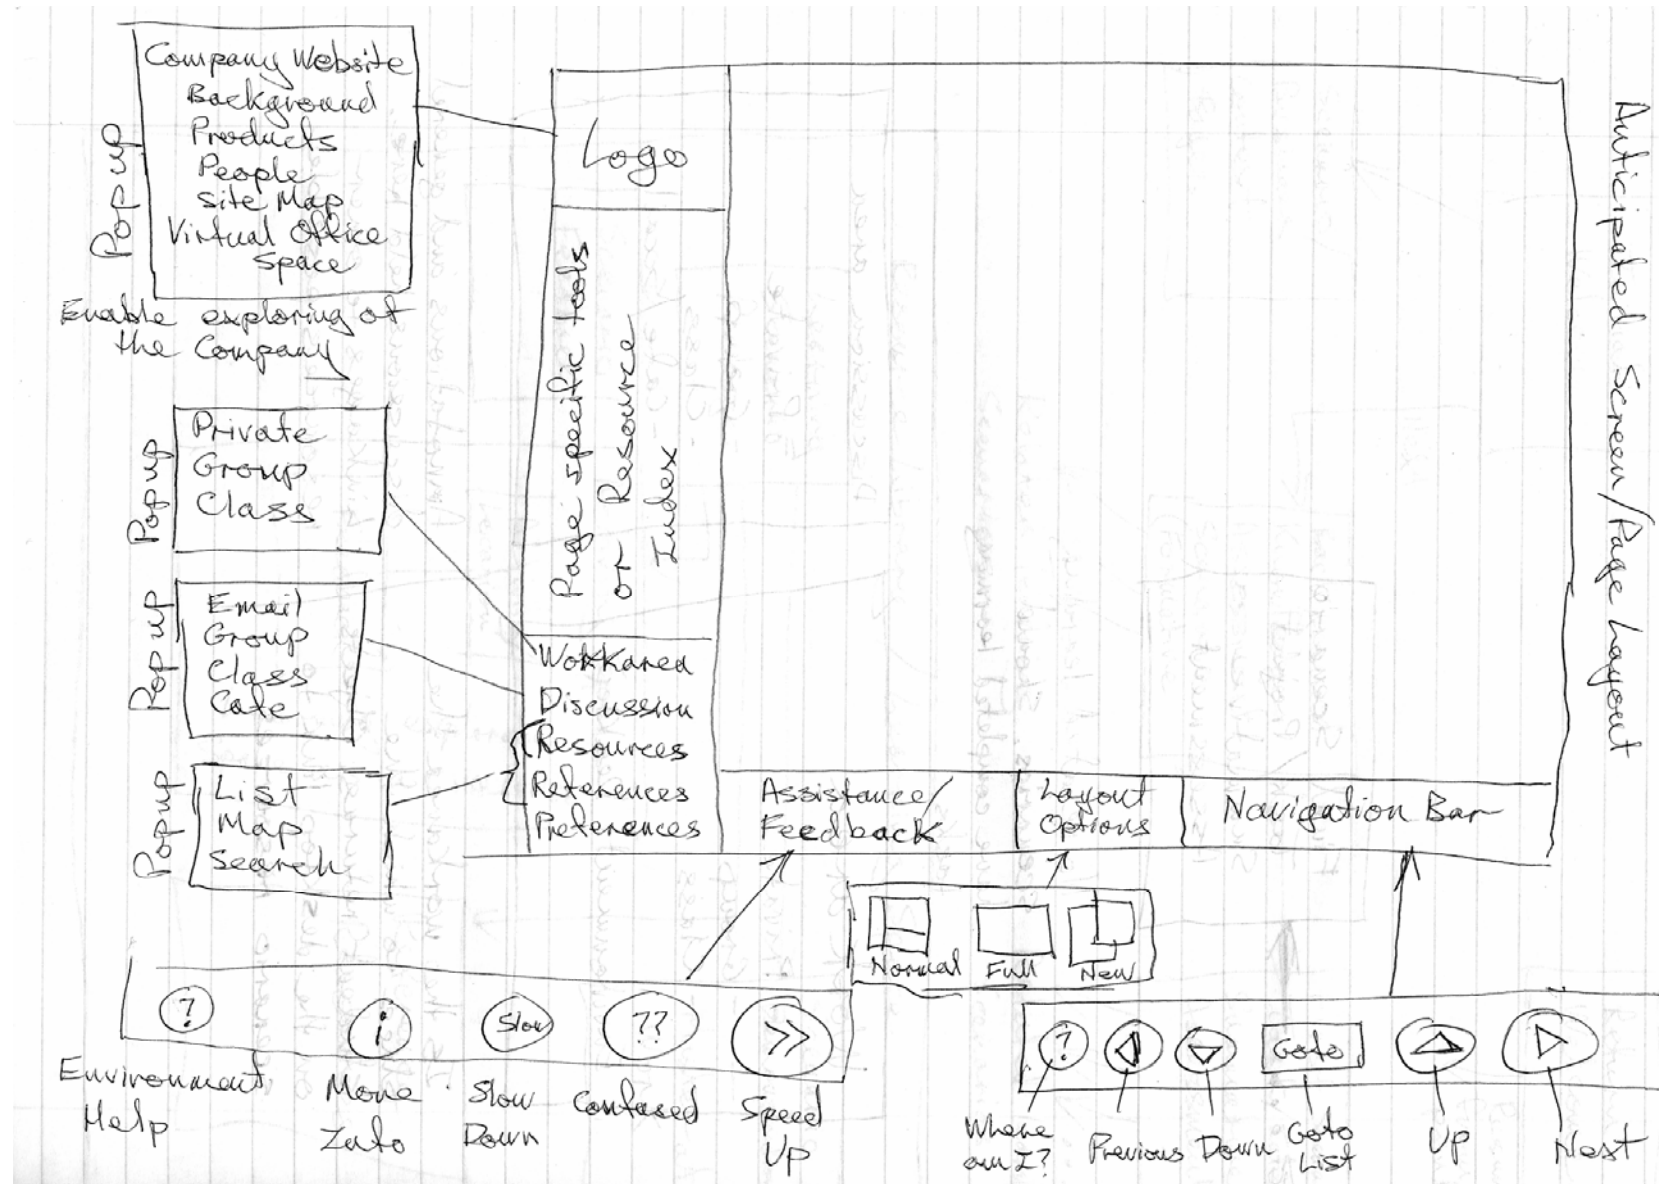 Company Website
Background
Products
People
Site Map
Virtual Office
Space
Pop up
Enable exploring of
the Company
Private
Group
Class
Pop up
Email
Group
Class
Cafe
Pop up
List
Map
Search
Popup
Logo
Page specific tools
or Resource
Index
Workarea
Discussion
Resources
References
Preferences
Assistance/
Feedback
Layout
Options
Navigation Bar
Anticipated Screen/Page Layout
Normal
Full
New
?
i
Slow
??
>>
Environment
Help
More
Info
Slow
Down
Confused
Speed
Up
?
Goto
Where
am I?
Previous
Down
Goto
List
Up
Next